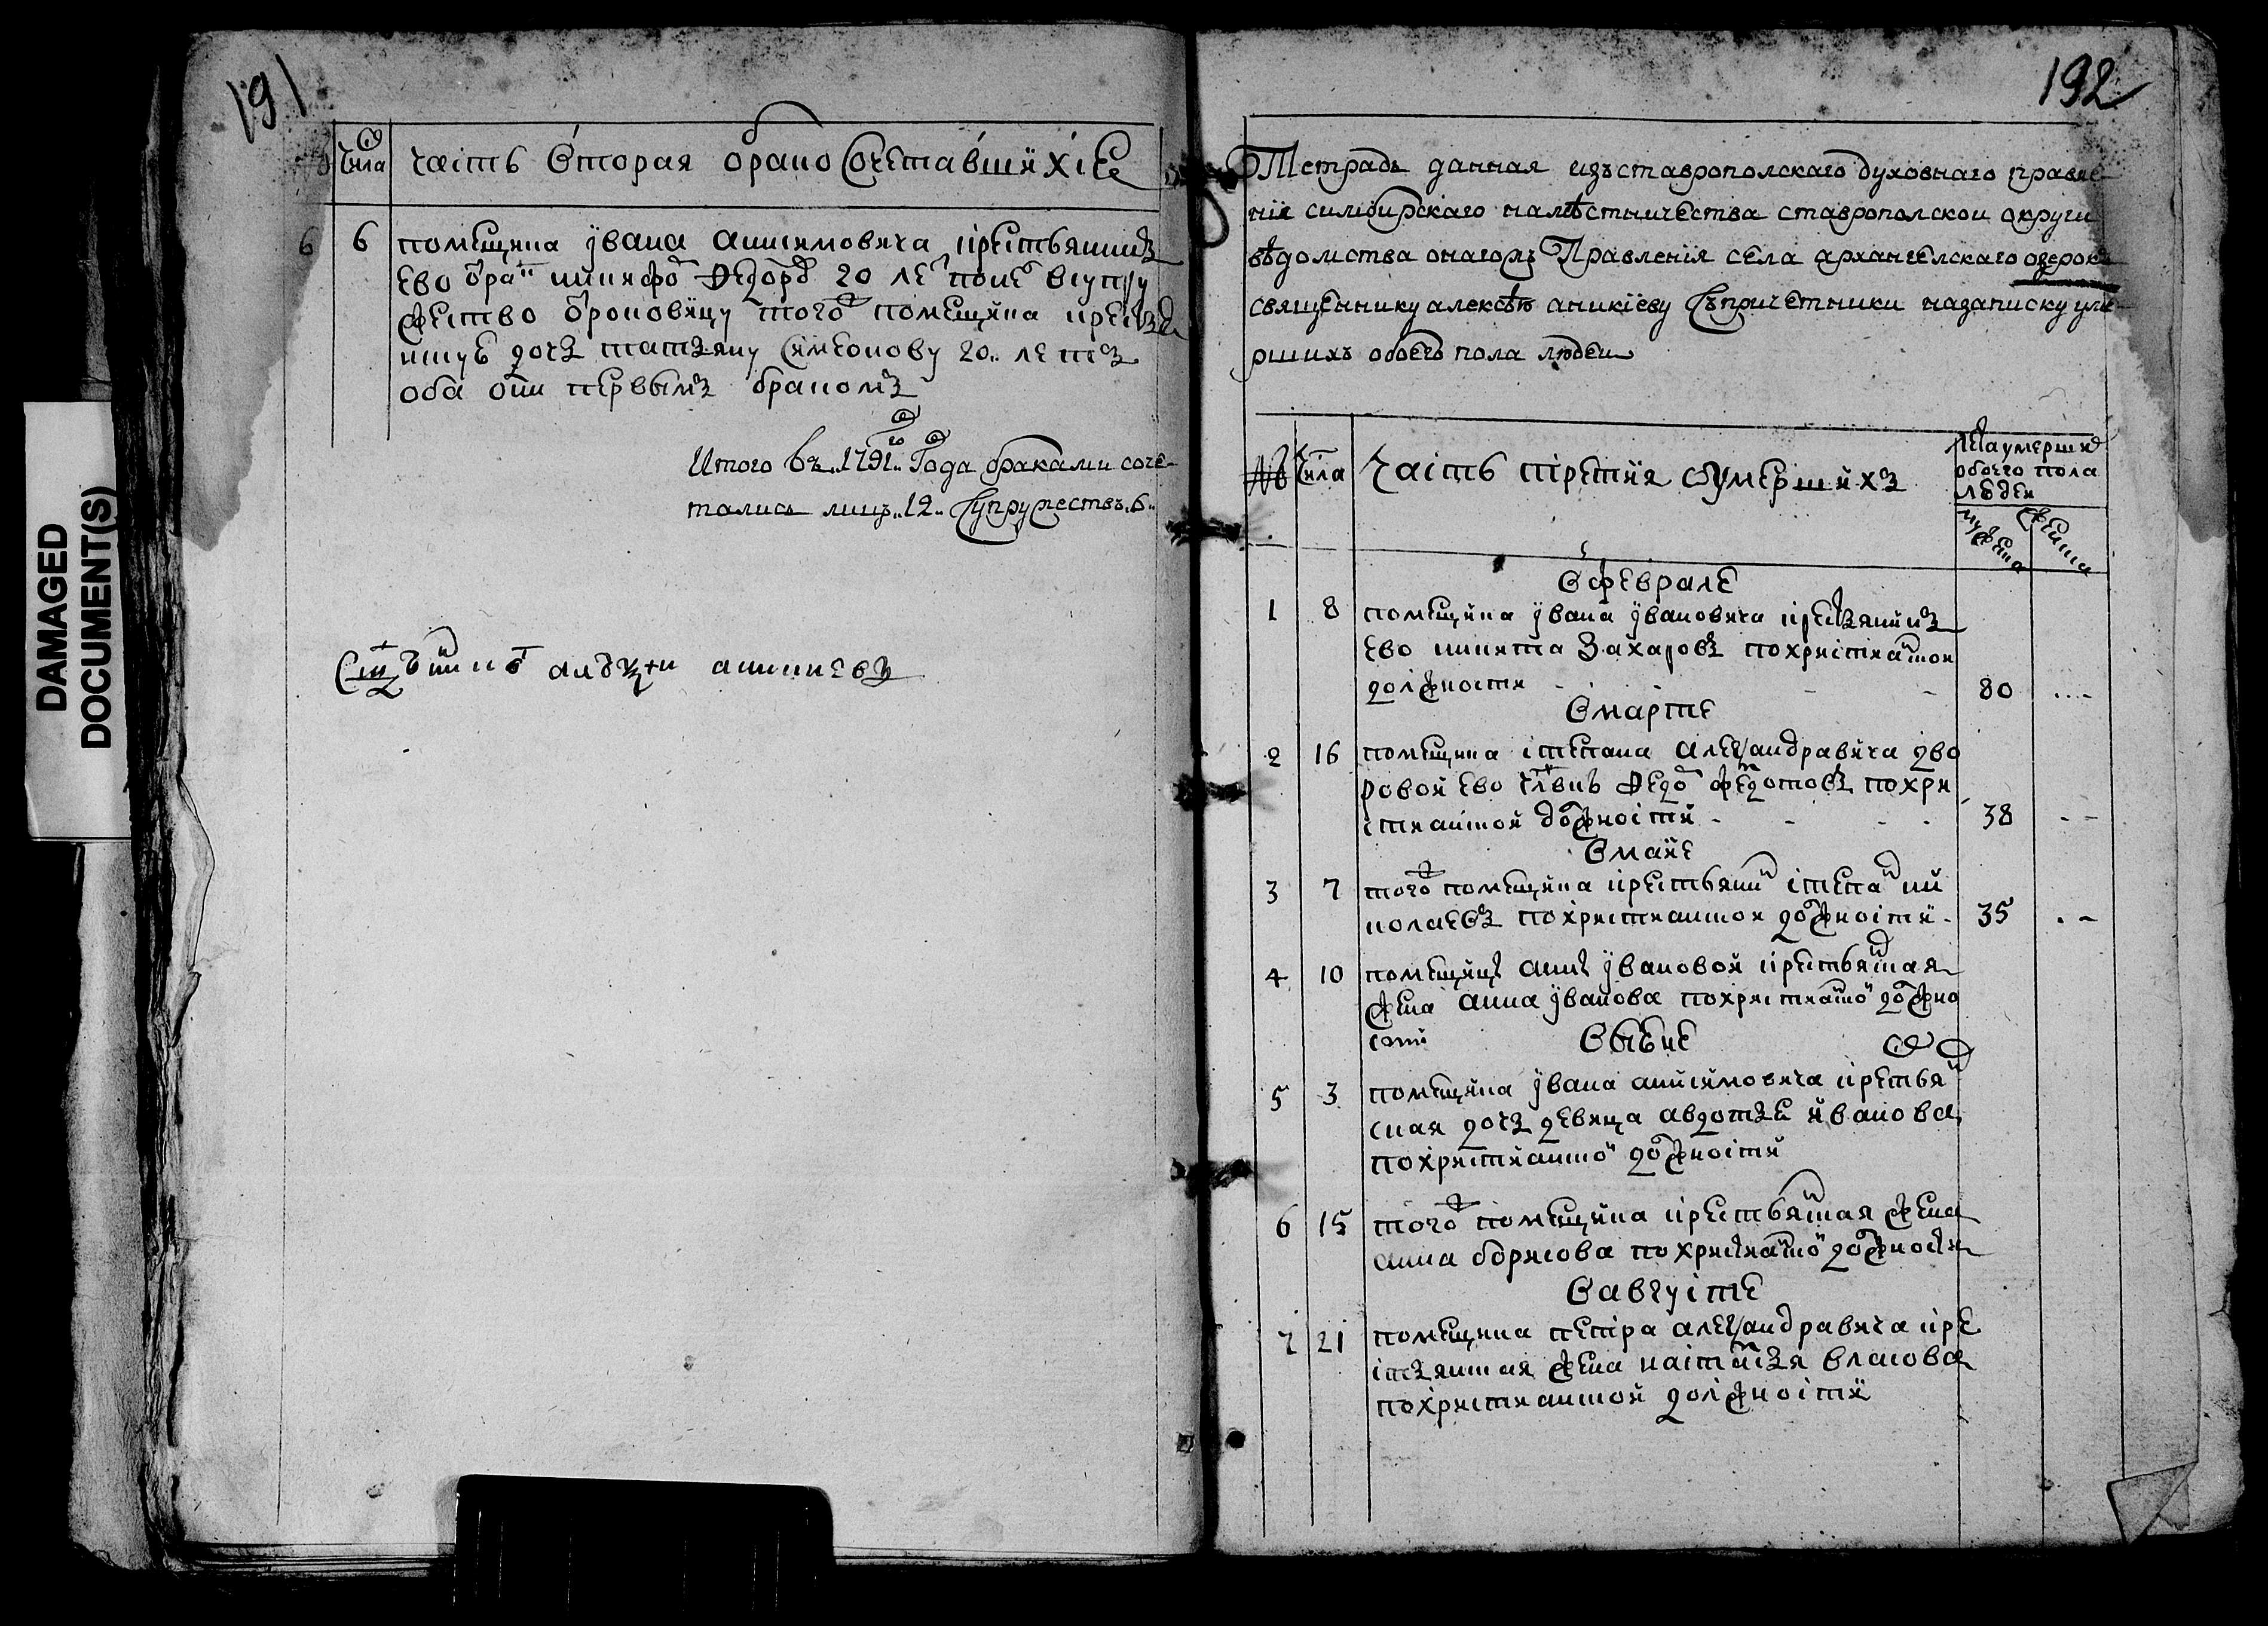 191
числа часть вторая бракосочетавшихся
6 6 помещика Ивана Анисимовича крестьянинъ
ево
Федоръ 20 летъ понелъ в супру
жество
того ж помещика кресть
дочь татьяну Симеонову 20.. летъ
оба они первымъ бракомъ
Итого въ..1791..го Года браками соче-
тались лицъ..12.. Супружествъ..6..
DAMAGED
DOCUMENT(S)
192
Тетрадь данная изъ ставрополскаго духовнаго правле
ния симбирскаго намѣстничества ставрополской округи
вѣдомства оного жъ Правленія села архангелскаго озерокъ
священнику алексѣю аникіеву Съпричетники назаписку уме
ршихъ обоего пола людей
№ числа часть третия оумершихъ
лета умершихъ
обоего пола
людей
мужеска женска
в феврале
1 8 помещика Ивана Ивановича крестьянинъ
ево никита Захаровъ по христианской
должности 80
в марте
2 16 помещика степана Александравича дво
ровой ево человекъ Федоръ федотовъ по хри
стианской должности 38
в майе
3 7 того ж помещика крестьянинъ степанъ ни
колаевъ по христианской должности 35
4 10 помещицы анны Ивановой крестьянская
жена анна Иванова по христианской должно
сти
в июне
5 3 помещика Ивана анисимовича крестьян
ская дочь девица авдотье иванова
по христианской должности
6 15 того ж помещика крестьянская жена
анна борисова по христианской должности
в августе
7 21 помещика петра александравича кре
стьянская жена настасья власова
по христианской должности